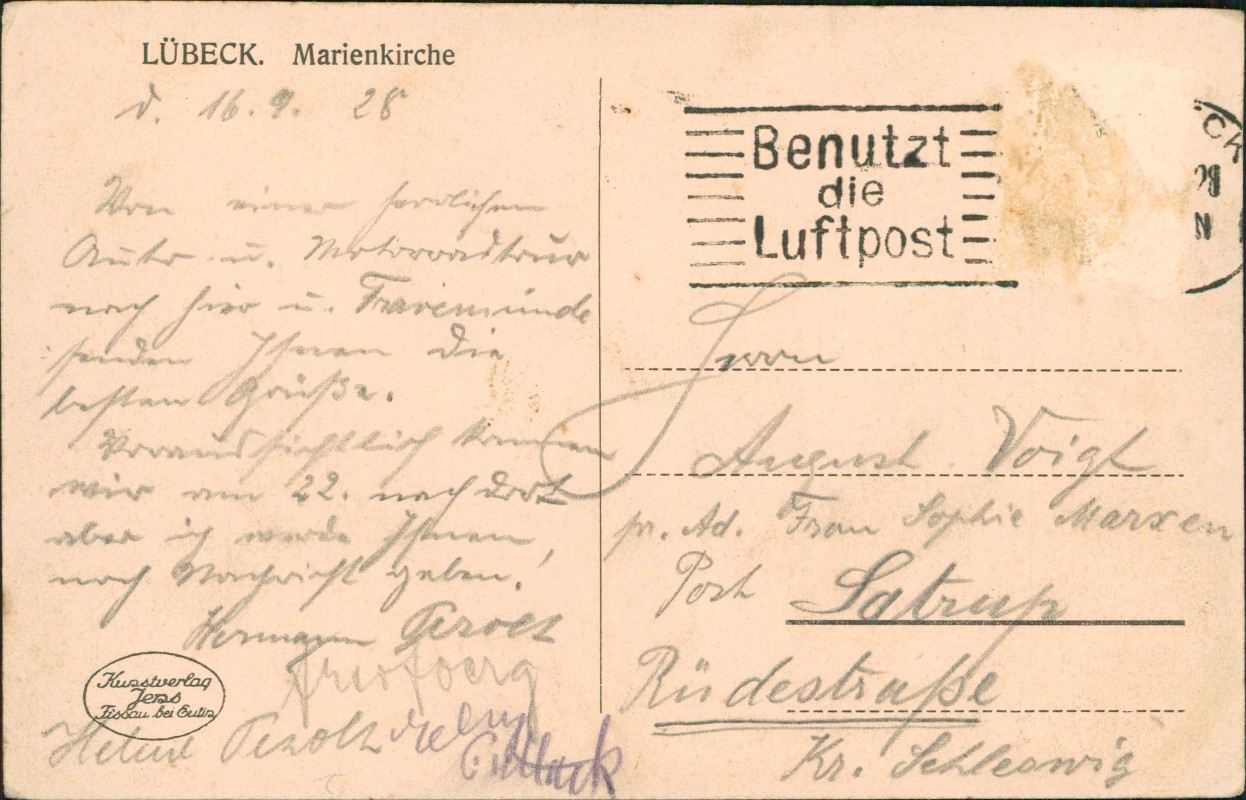 LÜBECK. Marienkirche
d. 16. 9. 28
Von einer herrlichen
Auto u. Motorradtour
nach hier u. Travemünde
senden Ihnen die
besten Grüße.
Voraussichtlich kommen
wir am 22. nach dort
aber ich werde Ihnen
noch Nachricht geben!
Hermann
Kunstverlag
Jens
Fissau bei Eutin
Benutzt
die
Luftpost
CK
Herrn
August Voigt
pr. Ad. Frau Sophie Marxen
Post Satrup
Rüdestraße
Kr. Schleswig